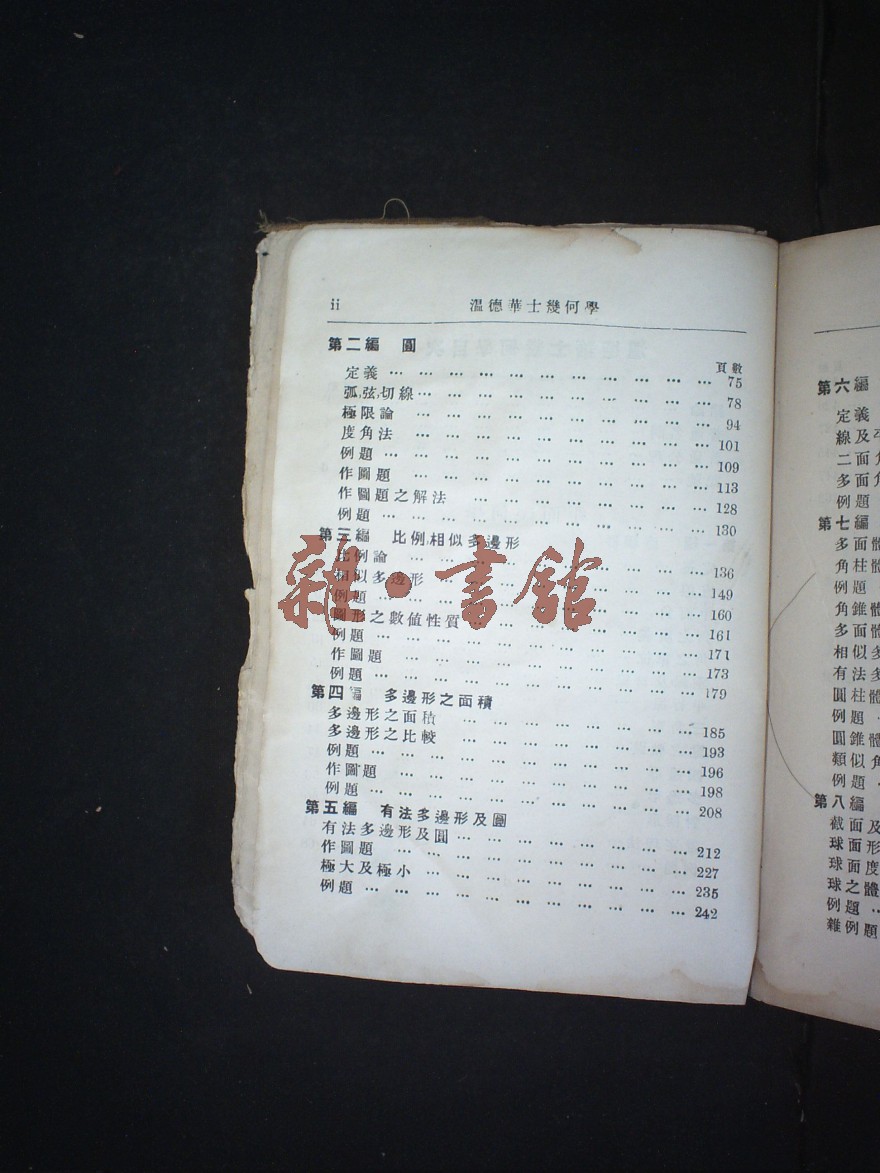 ii 溫德華士幾何學
第二編 圓
頁數
定義 … … … … … … … … … … 75
弧,弦,切線… … … … … … … … … … 78
極限論 … … … … … … … … … 94
度角法 … … … … … … … … … 101
例題 … … … … … … … … … … 109
作圖題 … … … … … … … … … 113
作圖題之解法 … … … … … … … 128
例題 … … … … … … … … … … 130
第三編 比例,相似多邊形
比例論 … … … … … … … … … 136
相似多邊形 … … … … … … … … 149
例題 … … … … … … … … … … 160
圖形之數值性質 … … … … … … … 161
例題 … … … … … … … … … … 171
作圖題 … … … … … … … … … 173
例題 … … … … … … … … … … 179
第四編 多邊形之面積
多邊形之面積 … … … … … … … 185
多邊形之比較 … … … … … … … 193
例題 … … … … … … … … … … 196
作圖題 … … … … … … … … … 198
例題 … … … … … … … … … … 208
第五編 有法多邊形及圓
有法多邊形及圓 … … … … … … … 212
作圖題 … … … … … … … … … 227
極大及極小 … … … … … … … … 235
例題 … … … … … … … … … … 242
雜·書館
第六編
定義
線及平
二面角
多面角
例題
第七編
多面體
角柱體
例題
角錐體
多面體
相似多
有法多
圓柱體
例題
圓錐體
類似角
例題
第八編
截面及
球面形
球面度
球之體
例題
雜例題